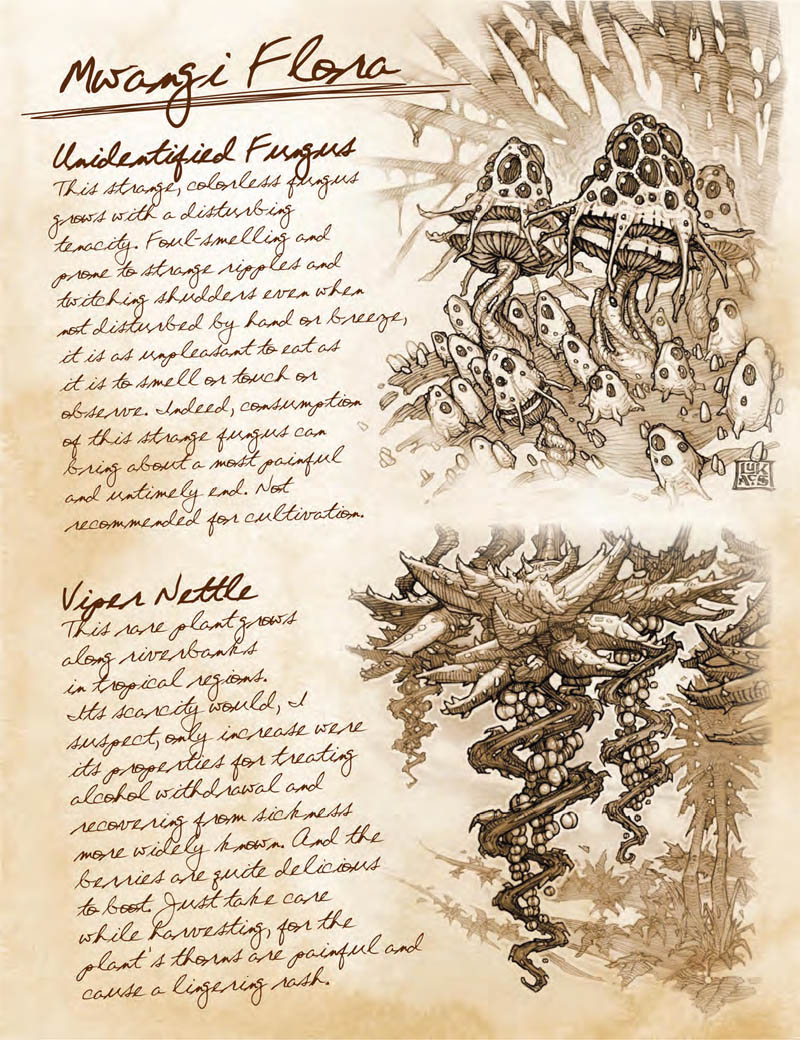 Mwangi Flora
Unidentified Fungus
This strange, colorless fungus
grows with a disturbing
tenacity. Foul-smelling and
prone to strange ripples and
twitching shudders even when
not disturbed by hand or breeze,
it is as unpleasant to eat as
it is to smell or touch or
observe. Indeed, consumption
of this strange fungus can
bring about a most painful
and untimely end. Not
recommended for cultivation.
LUK
ACS
Viper Nettle
This rare plant grows
along riverbanks
in tropical regions.
Its scarcity would, I
suspect, only increase were
its properties for treating
alcohol withdrawal and
recovering from sickness
more widely known. And the
berries are quite delicious
to boot. Just take care
while harvesting, for the
plant's thorns are painful and
cause a lingering rash.